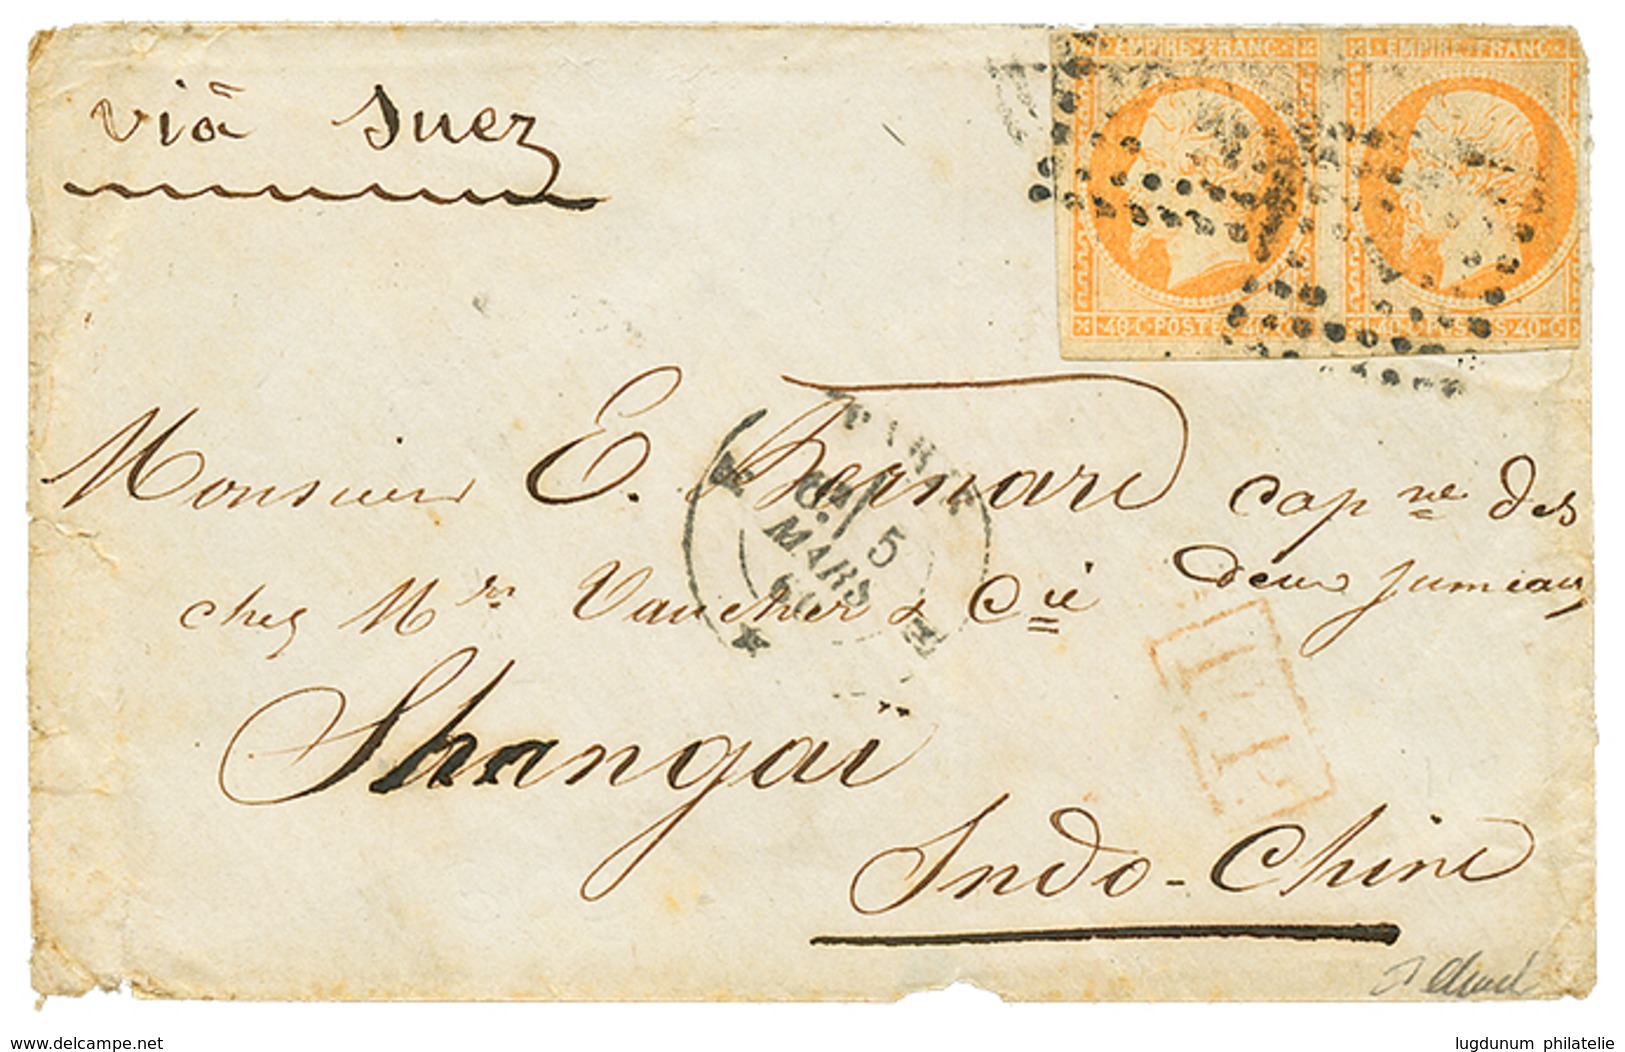 viâ Suez
EMPIRE FRANC
EMPIRE FRANC
40 C POSTES 40 C
40 C POSTES 40 C
Monsieur E. Bernard cap ne des
deux Jumeaux
chez Mrs Vaucher & Cie
PARIS
5
MARS
60
P.P.
Shangaï
Indo-Chine
www.delcampe.net
lugdunum philatelie